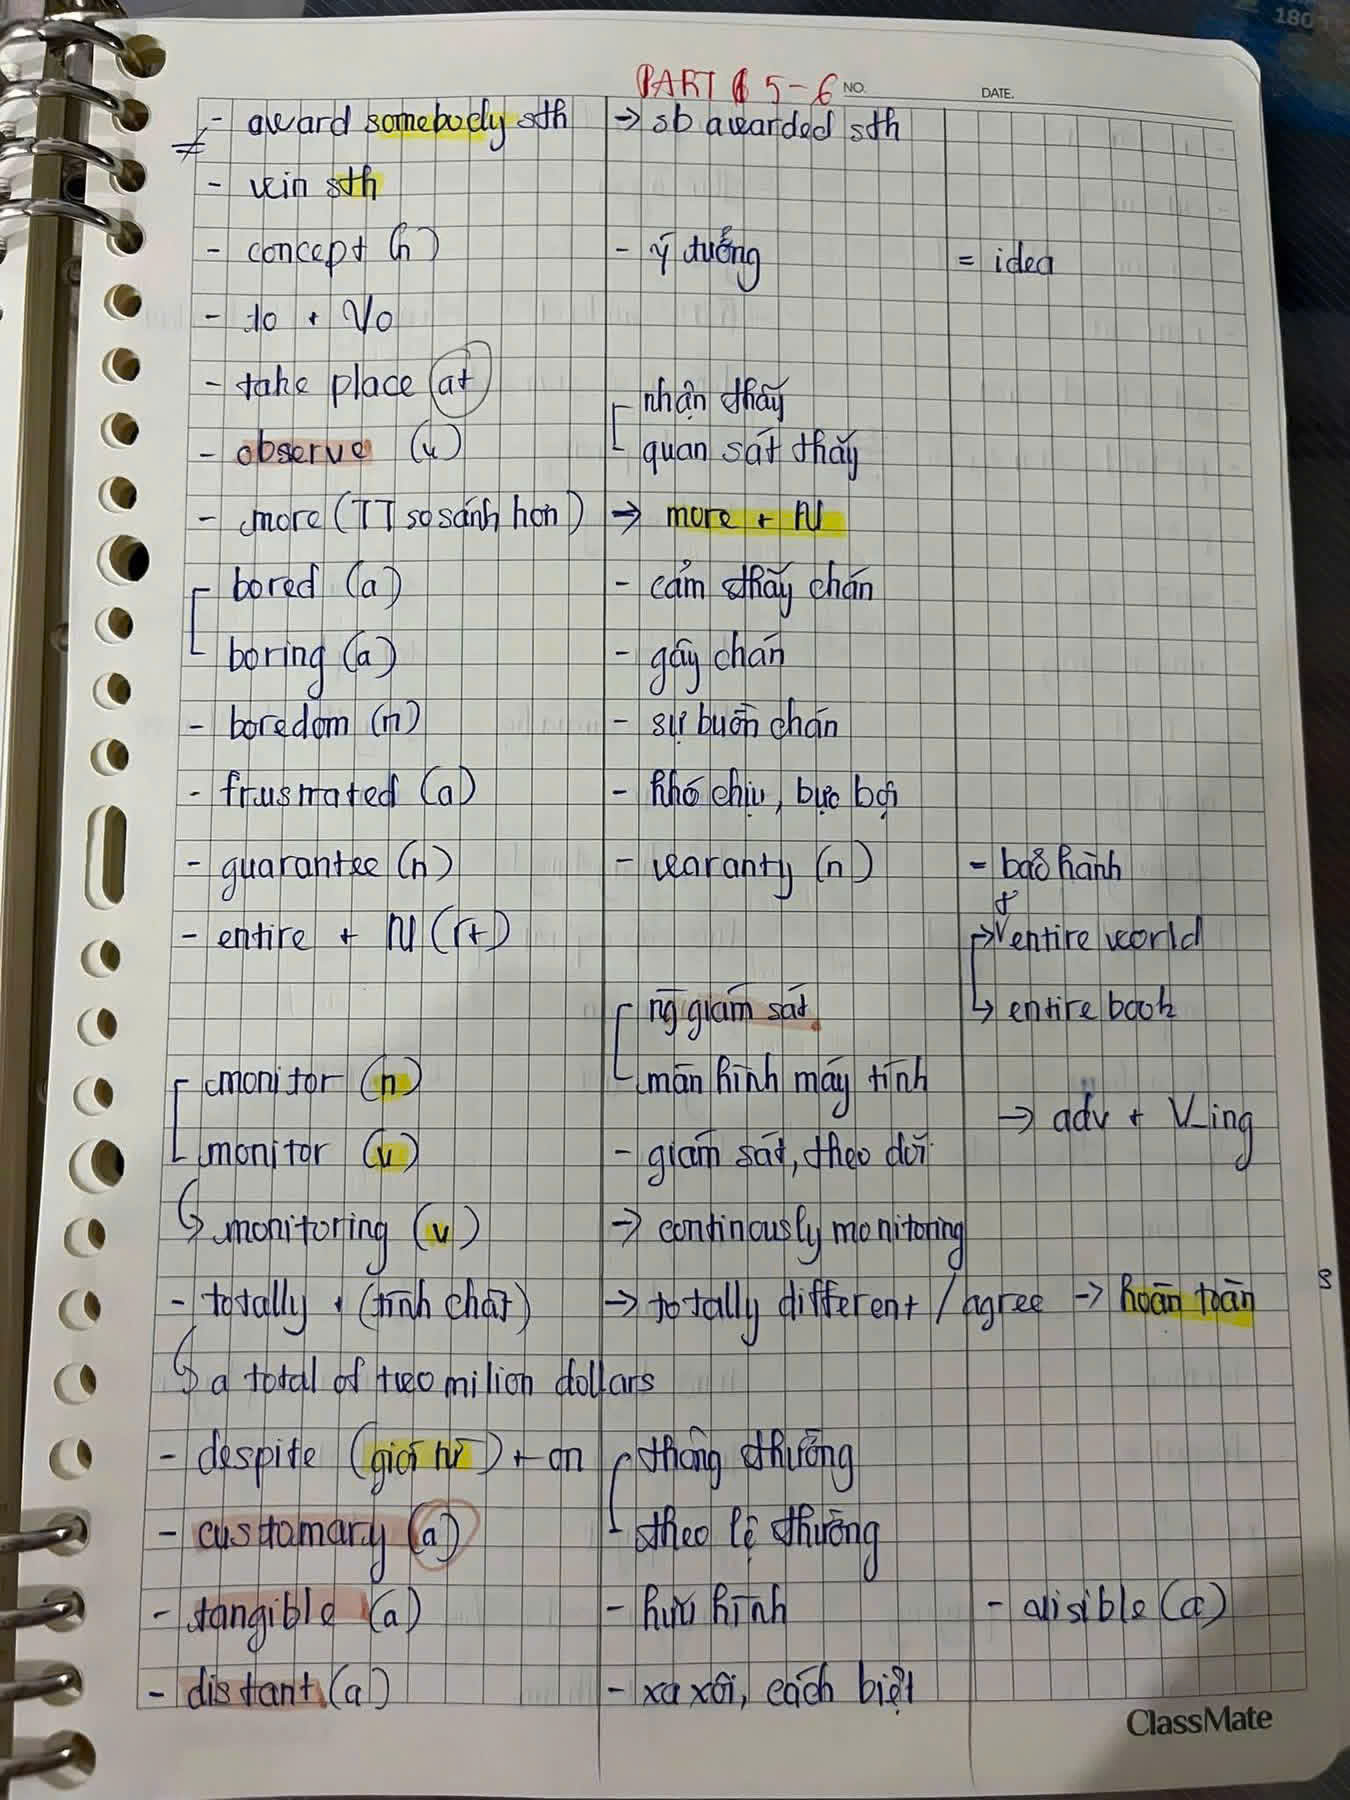 180
PART 5-6 NO. DATE.
- award somebody sth → sb awarded sth
≠
- win sth
- concept (n) - ý tưởng = idea
- to + Vo
- take place (at)
nhận thấy
- observe (v) quan sát thấy
- more (TT so sánh hơn) → more + N
- bored (a) - cảm thấy chán
- boring (a) - gây chán
- boredom (n) - sự buồn chán
- frusmated (a) - khó chịu, bực bội
- guarantee (n) - waranty (n) = bảo hành
- entire + N (ít) → entire world
ng giám sát ↳ entire book
- monitor (n) - màn hình máy tính
→ adv + V_ing
- monitor (v) - giám sát, theo dõi
↳ monitoring (v) → continously monitoring
- totally + (tính chất) → totally different / agree → hoàn toàn
↳ a total of two milion dollars
- despite (giới từ) + on - thông thường
- customary (a) - theo lệ thường
- tangible (a) - hữu hình - visible (a)
- distant (a) - xa xôi, cách biệt
ClassMate